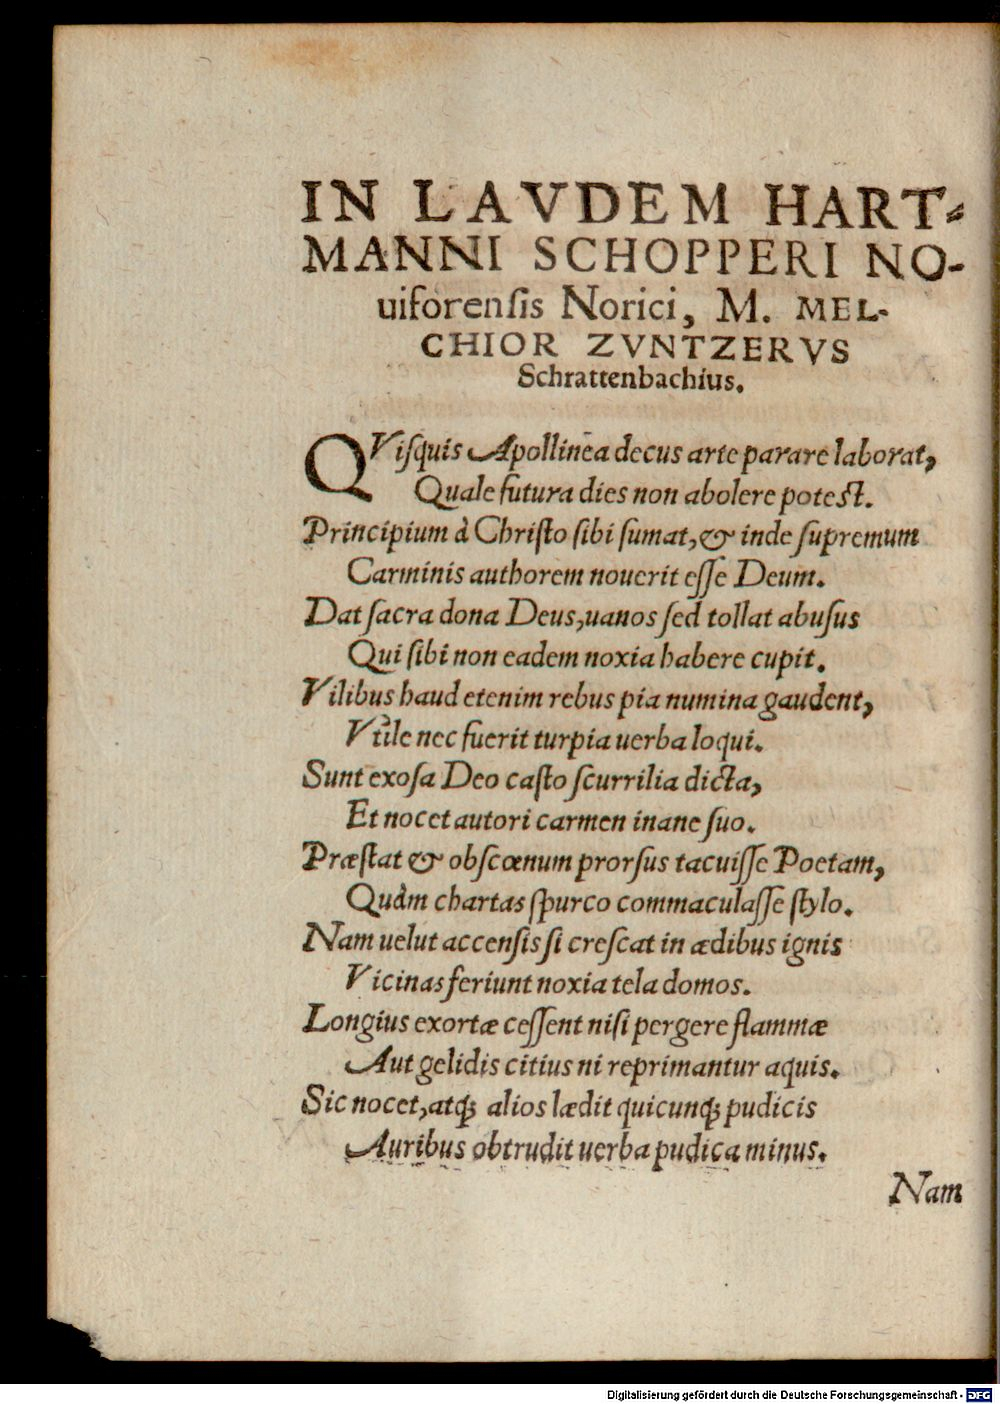 IN LAVDEM HART-
MANNI SCHOPPERI NO-
uiforensis Norici, M. MEL-
CHIOR ZVNTZERVS
Schrattenbachius.
QVisquis Apollinea decus arte parare laborat,
Quale futura dies non abolere potest.
Principium à Christo sibi sumat, & inde supremum
Carminis authorem nouerit esse Deum.
Dat sacra dona Deus, uanos sed tollat abusus
Qui sibi non eadem noxia habere cupit.
Vilibus haud etenim rebus pia numina gaudent,
Vtile nec fuerit turpia uerba loqui.
Sunt exosa Deo casto scurrilia dicta,
Et nocet autori carmen inane suo.
Præstat & obscœnum prorsus tacuisse Poetam,
Quàm chartas spurco commaculasse stylo.
Nam uelut accensis si crescat in ædibus ignis
Vicinas feriunt noxia tela domos.
Longius exortæ cessent nisi pergere flammæ
Aut gelidis citius ni reprimantur aquis.
Sic nocet, atq; alios lædit quicunq; pudicis
Auribus obtrudit uerba pudica minus.
Nam
Digitalisierung gefördert durch die Deutsche Forschungsgemeinschaft - DFG